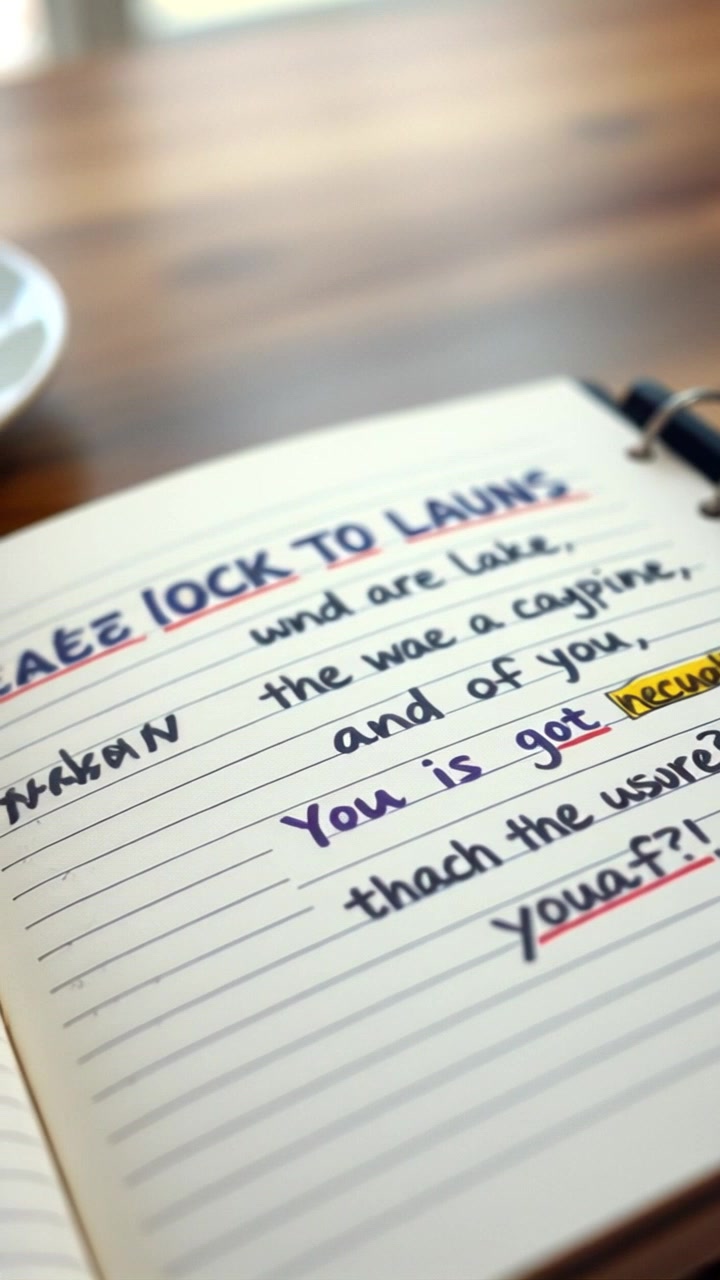 LOCK TO LAUNS
wnd are lake,
the wae a caypine,
and of you,
You is got
thach the usure?
youaf?!